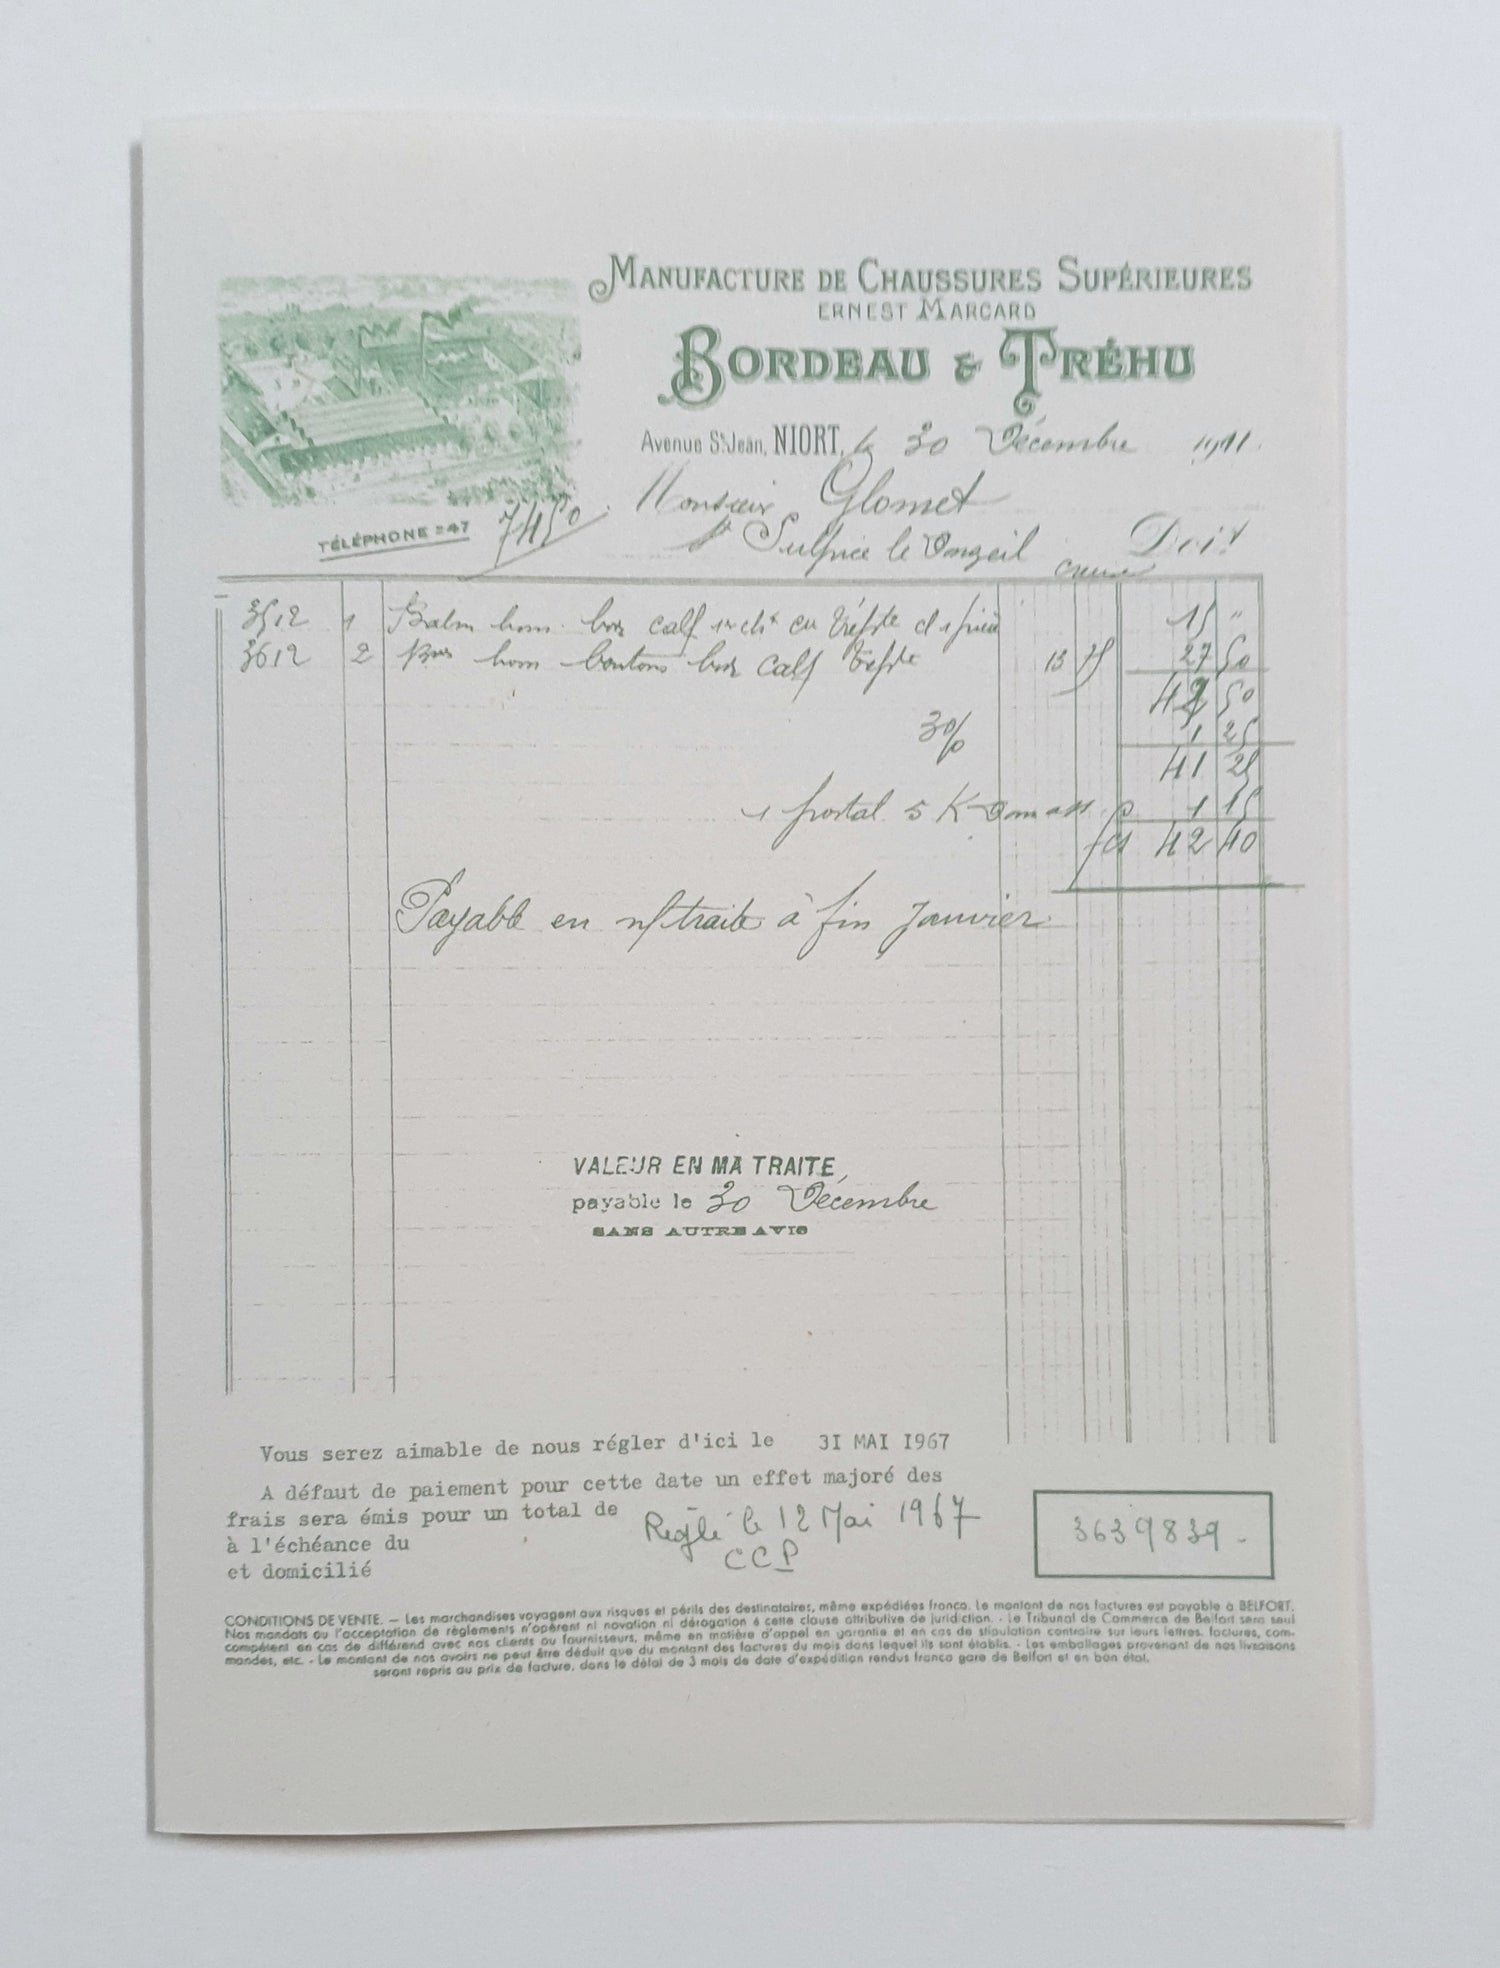 MANUFACTURE DE CHAUSSURES SUPÉRIEURES
ERNEST MARCARD
BORDEAU & TRÉHU
Avenue St Jean, NIORT, le 30 Décembre 1911.
Monsieur Glomet
TÉLÉPHONE 2=47 7450
St Sulpice le Donzeil Creuse Doit
3512 1 hom. box calf 15 "
3612 2 hom boutons box calf 13 75 27 50
42 50
3% 1 25
41 25
1 postal 5 K 1 15
fcs 42 40
Payable en n/traite à fin Janvier
VALEUR EN MA TRAITE
payable le 30 Décembre
SANS AUTRE AVIS
Vous serez aimable de nous régler d'ici le 3I MAI I967
A défaut de paiement pour cette date un effet majoré des
frais sera émis pour un total de
à l'échéance du
et domicilié
Réglé le 12 Mai 1967
CCP
3639839.
CONDITIONS DE VENTE. — Les marchandises voyagent aux risques et périls des destinataires, même expédiées franco. Le montant de nos factures est payable à BELFORT.
Nos mandats ou l'acceptation de règlements n'opèrent ni novation ni dérogation à cette clause attributive de juridiction. - Le Tribunal de Commerce de Belfort sera seul
compétent en cas de différend avec nos clients ou fournisseurs, même en matière d'appel en garantie et en cas de stipulation contraire sur leurs lettres, factures, com-
mandes, etc. - Le montant de nos avoirs ne peut être déduit que du montant des factures du mois dans lequel ils sont établis. - Les emballages provenant de nos livraisons
seront repris au prix de facture, dans le délai de 3 mois de date d'expédition rendus franco gare de Belfort et en bon état.